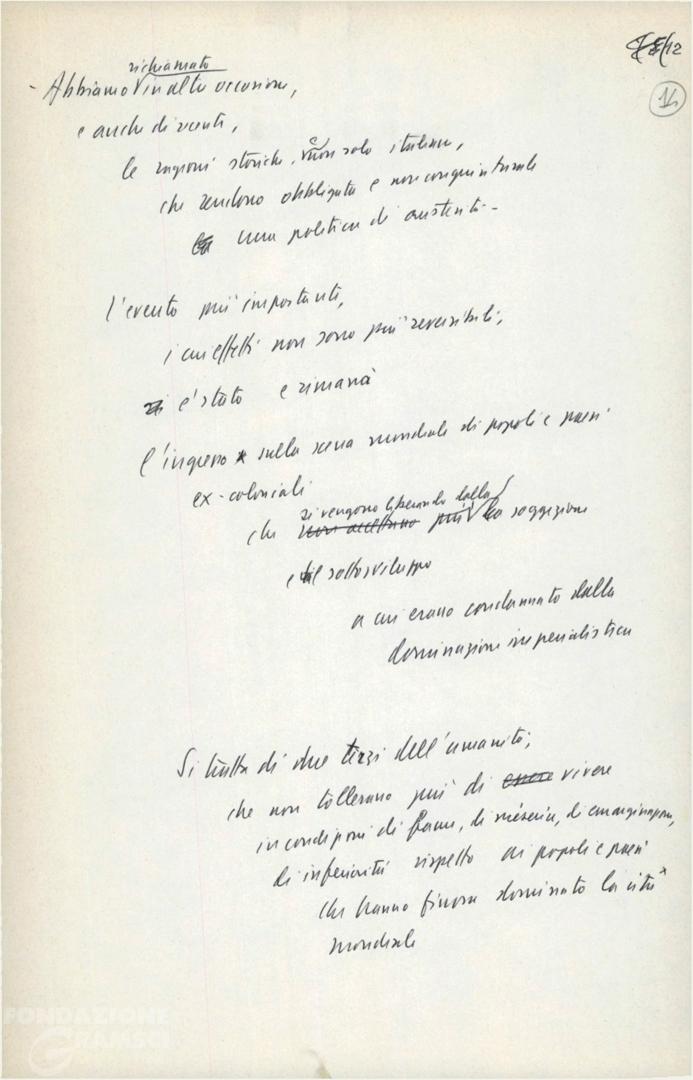 12
14
richiamato
- Abbiamo in altre occasioni,
e anche di recente,
le ragioni storiche, e non solo italiane,
che rendono obbligata e non congiunturale
una politica di austerità -
L'evento più importante,
i cui effetti non sono più reversibili,
è stato e rimarrà
l'ingresso sulla scena mondiale di popoli e paesi
ex-coloniali
si vengono liberando dalla
che non accettano più la soggezione
e il sottosviluppo
a cui erano condannato dalla
dominazione imperialistica
Si tratta di due terzi dell'umanità,
che non tollerano più di essere vivere
in condizioni di fame, di miseria, di emarginazione,
di inferiorità rispetto ai popoli e paesi
che hanno finora dominato la vita
mondiale
FONDAZIONE
GRAMSCI